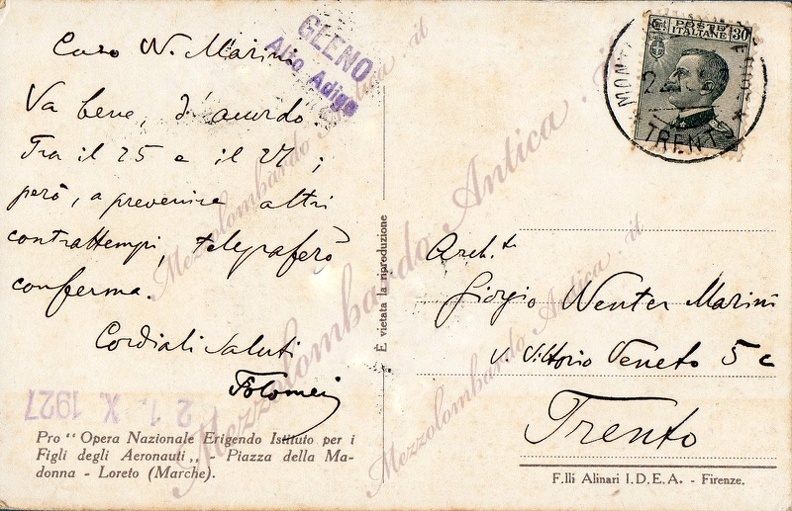 Caro W. Marini
Va bene, d'acordo.
Tra il 25 e il 27;
però, a prevenire altri
contrattempi, telegraferò
conferma.
Cordiali saluti
Tolomei
GLENO
Alto Adige
21. X. 1927
Pro "Opera Nazionale Erigendo Istituto per i
Figli degli Aeronauti„ - Piazza della Ma-
donna - Loreto (Marche).
È vietata la riproduzione
POSTE
ITALIANE
30
TRENT
Arch.to
Giorgio Wenter Marini
v. Vittorio Veneto 5 c
Trento
F.lli Alinari I.D.E.A. - Firenze.
Mezzolombardo Antica.it
Mezzolombardo Antica.it
Mezzolombardo Antica.it